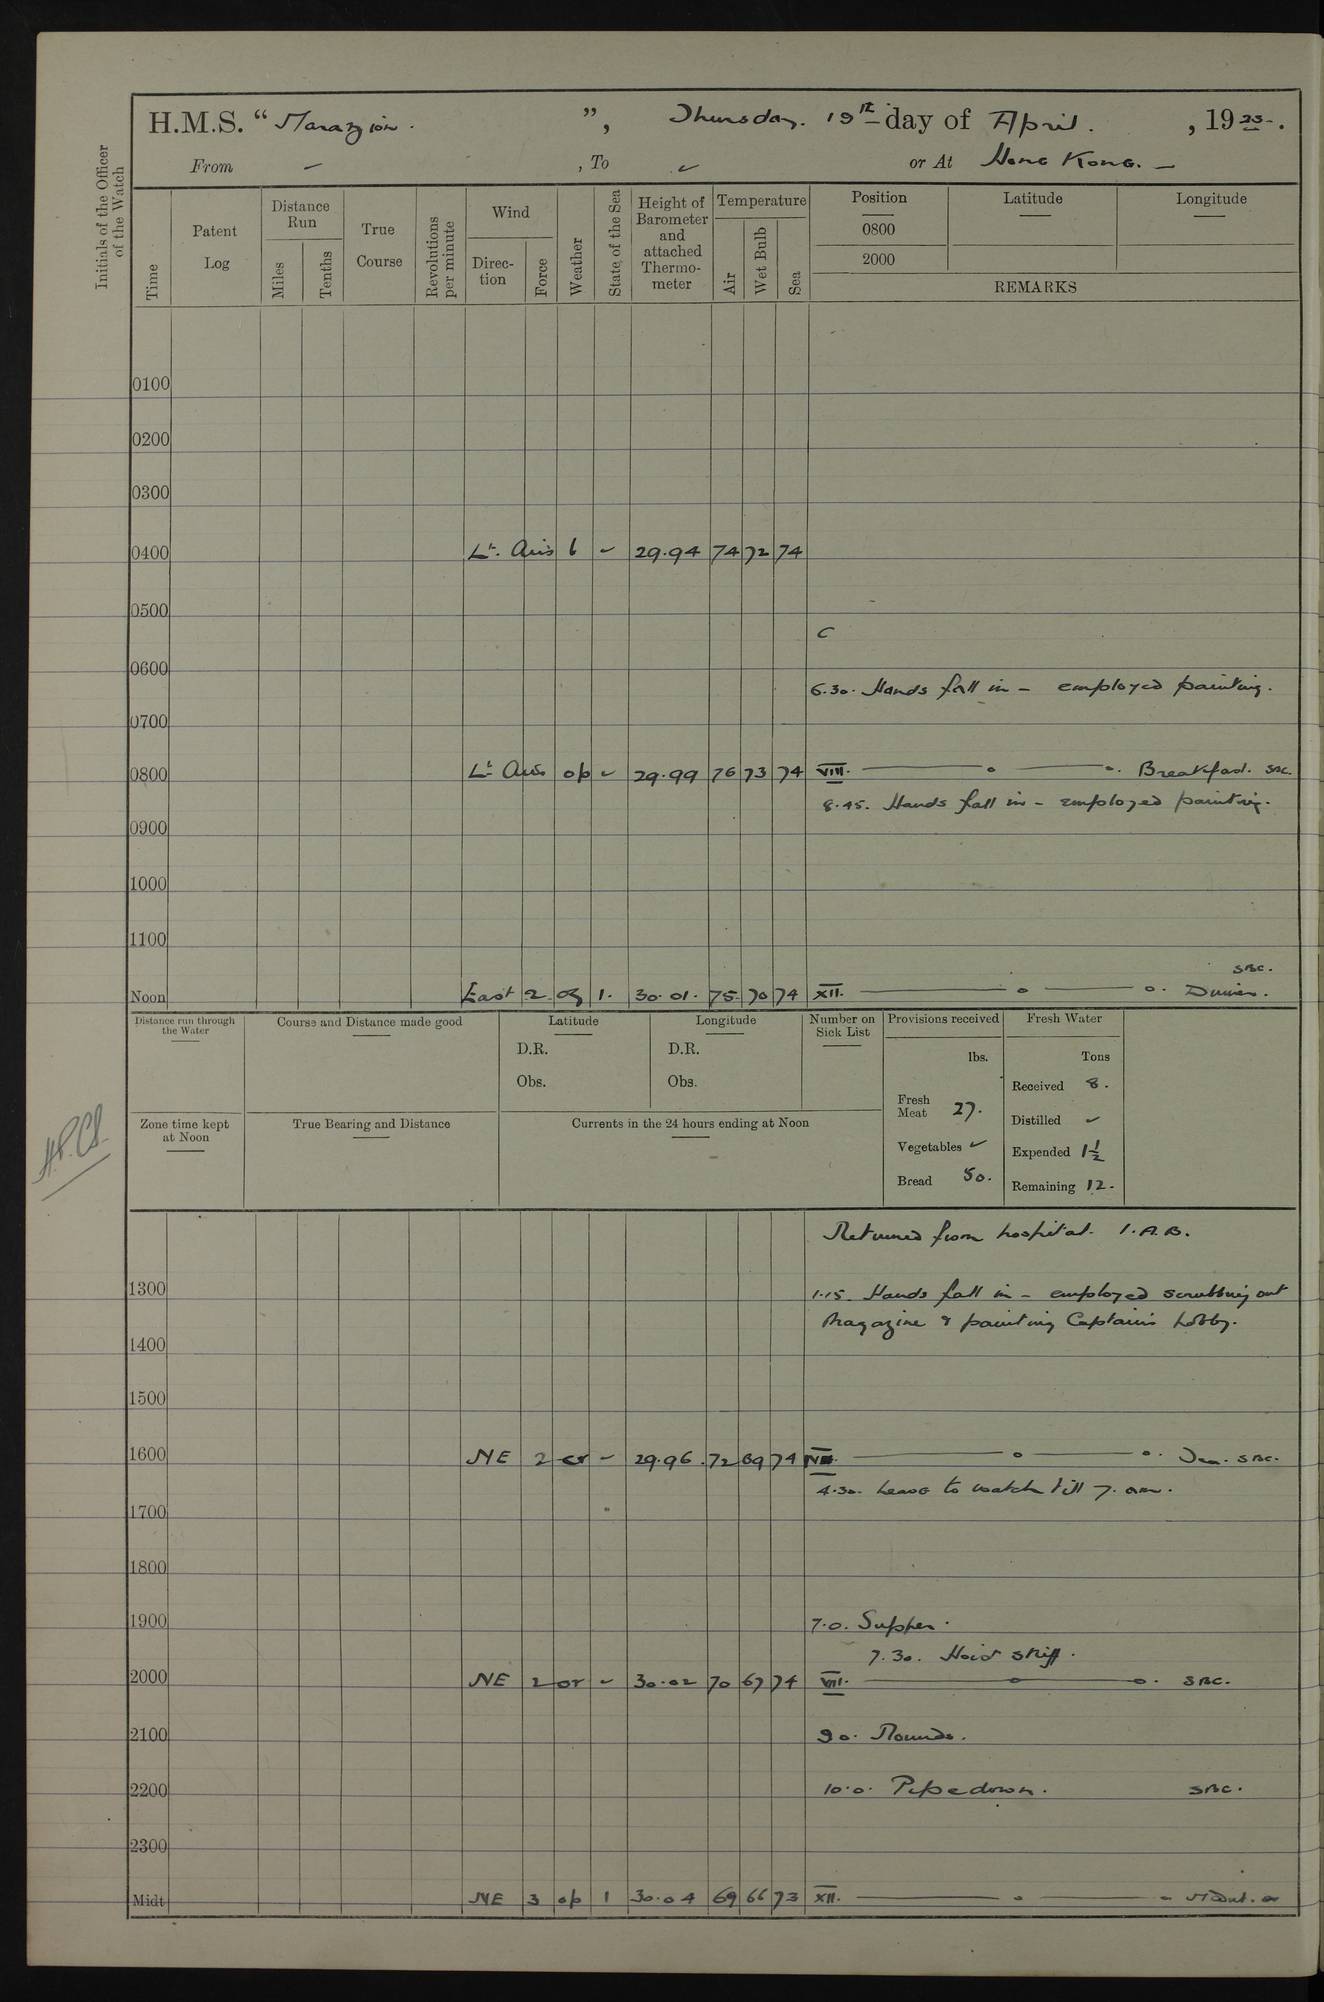 H.M.S. “ Marazion. ”, Thursday. 19th day of April. , 1923.
From — , To ✓ or At Hong Kong. —
Initials of the Officer of the Watch
Time
Patent Log
Distance Run
Miles
Tenths
True Course
Revolutions per minute
Wind
Direc-tion
Force
Weather
State of the Sea
Height of Barometer and attached Thermo-meter
Temperature
Air
Wet Bulb
Sea
Position Latitude Longitude
0800
2000
REMARKS
0100
0200
0300
0400 Lt. Airs b ✓ 29.94 74 72 74
0500
C
0600
6.30. Hands fall in — employed painting.
0700
0800 Lt. Airs op ✓ 29.99 76 73 74 VIII. Breakfast. SBC.
8.45. Hands fall in — employed painting.
0900
1000
1100
SBC.
Noon East 2 1. 30.01. 75 70 74 XII. Dinner.
Distance run through the Water
Course and Distance made good
Latitude
D.R.
Obs.
Longitude
D.R.
Obs.
Number on Sick List
Provisions received
lbs.
Fresh Meat 27.
Vegetables ✓
Bread 50.
Fresh Water
Tons
Received 8.
Distilled ✓
Expended 1½
Remaining 12.
Zone time kept at Noon
True Bearing and Distance
Currents in the 24 hours ending at Noon
Returned from hospital. 1. A.B.
1300
1.15. Hands fall in — employed scrubbing out
Magazine & painting Captain's Lobby.
1400
1500
1600 NE 2 or ✓ 29.96 72 69 74 Tea. SBC.
4.30. Leave to watch till 7. am.
1700
1800
1900
7.0. Supper.
7.30. Hoist skiff.
2000 NE 2 or ✓ 30.02 70 67 74 VIII. SBC.
2100
9.0. Rounds.
2200
10.0. Pipe down. SBC.
2300
Midt NE 3 op 1 30.04 69 66 73 XII.